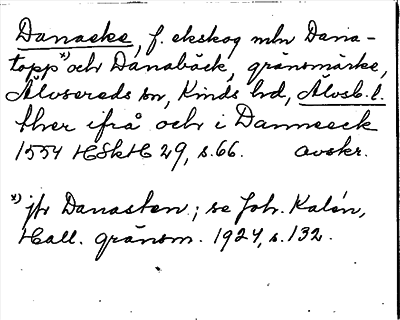 Danaeke, f. ekskog mln Dana-
topp*) och Danabäck, gränsmärke,
Älvsereds sn, Kinds hd, Älvsb. l.
thver ifrå och i Danneeck
1554 HSkH 29, s. 66. avskr.
*) jfr Danasten; se Joh. Kalén,
Hall. gränsm. 1924, s. 132.